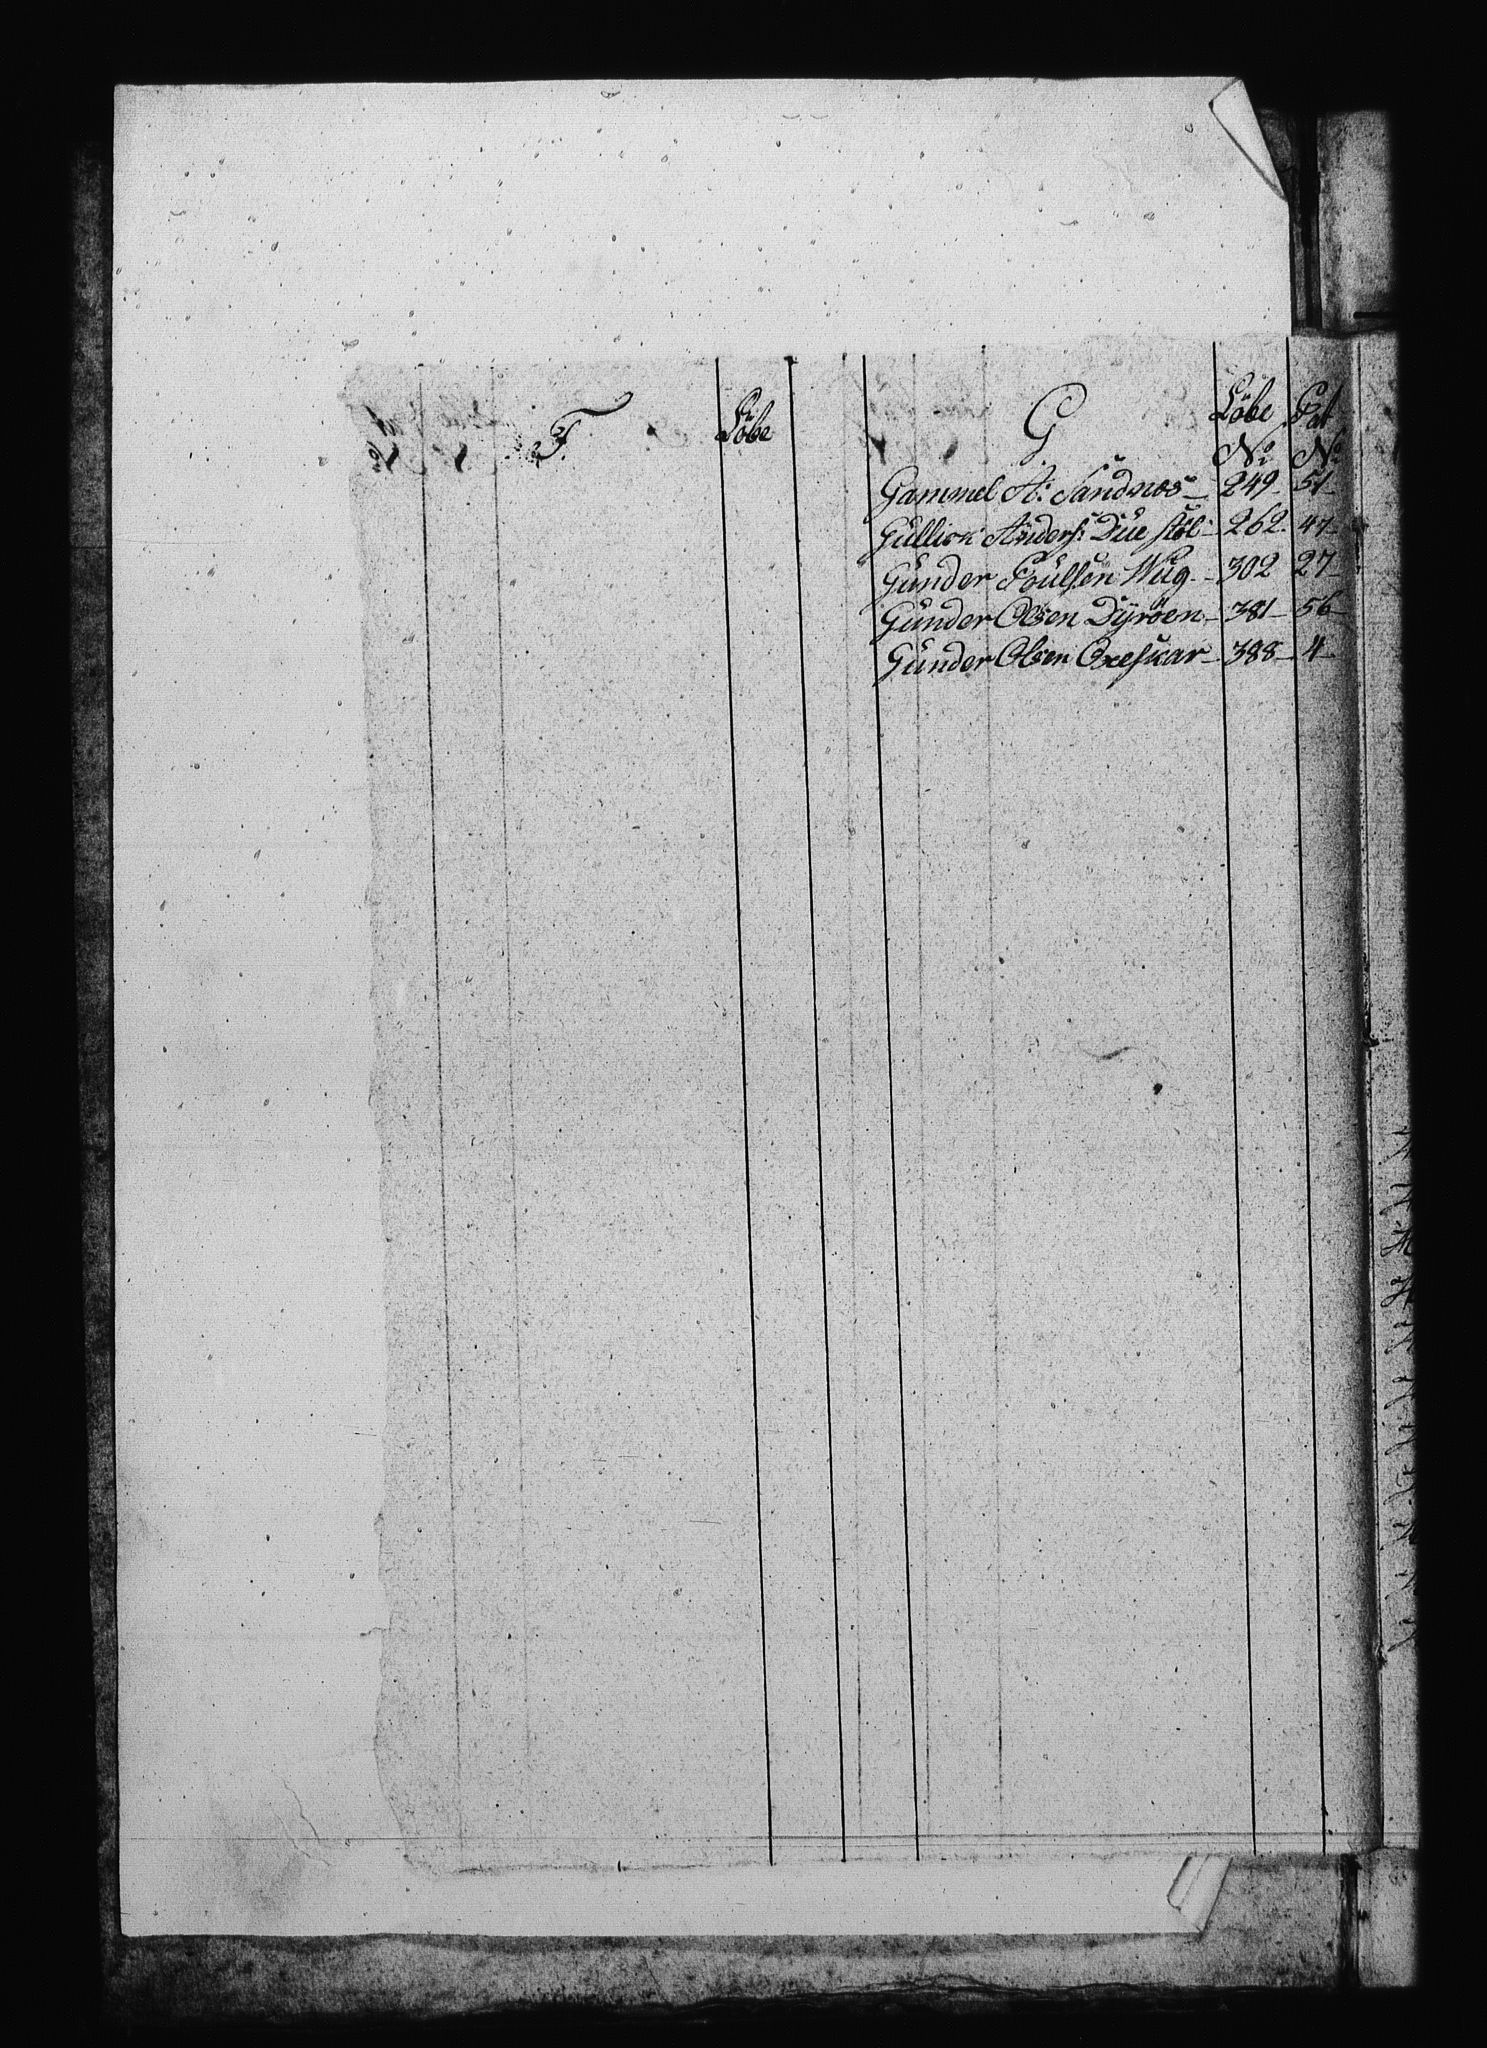 F.
Löbe
G
Löbe Pat
No No
Gammel A: Sandnæs 249 51
Gullick Anders: Due 262 47
Gunder Poulsen Wug 302 27
Gunder Olsen Dyröen 381 56
Gunder Olsen Oxeskar 388 4